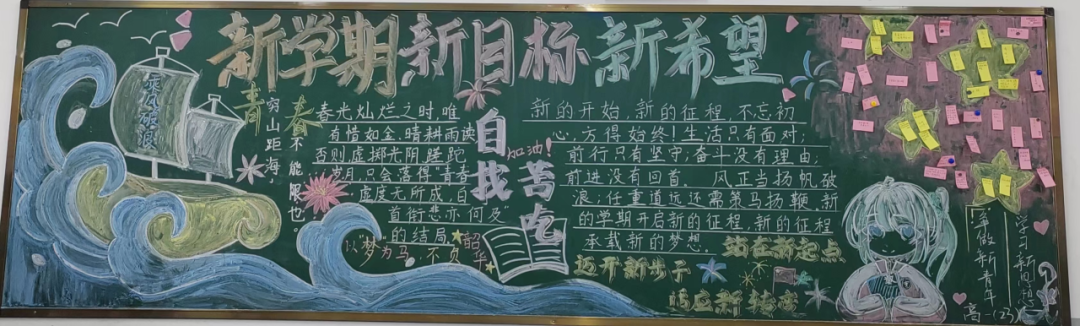 新学期新目标新希望
乘风破浪
青春
穷山距海，
不能限也。
春光灿烂之时，唯
有惜如金，晴耕雨读
否则虚掷光阴，蹉跎
岁月，只会落得"青春
虚度无所成，白
首衔悲亦何及"
的结局
以"梦"为马，不负韶华
自找苦吃
加油！
新的开始，新的征程，不忘初
心，方得始终！生活只有面对；
前行只有坚守；奋斗没有理由；
前进没有回首。风正当扬帆破
浪；任重道远还需策马扬鞭。新
的学期开启新的征程，新的征程
承载新的梦想。
站在新起点
迈开新步子
适应新转变
学习新思想
争做新青年
高一(23)